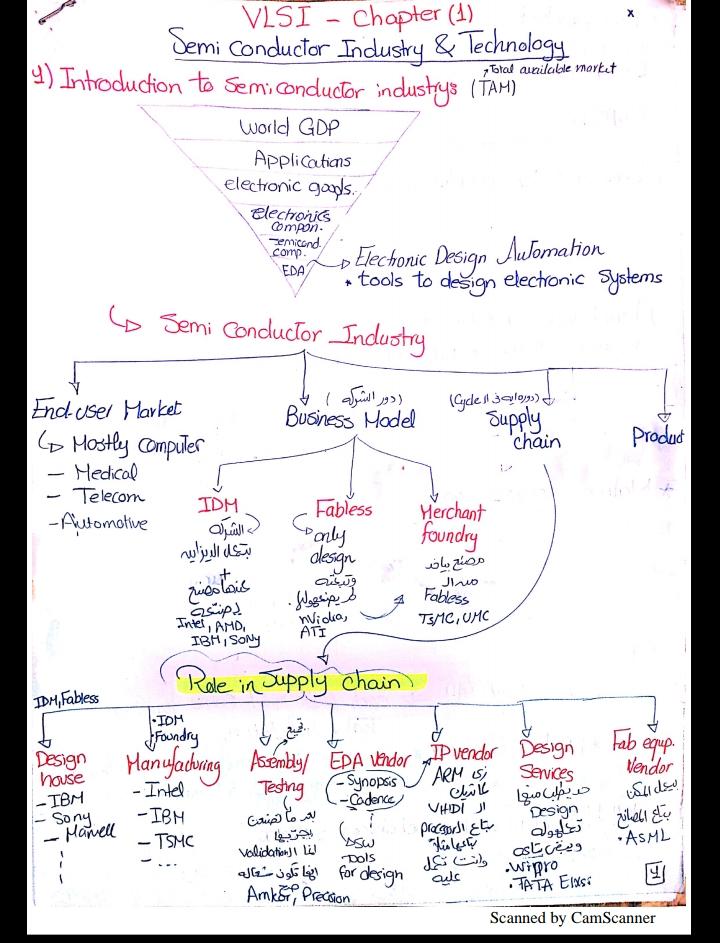 VLSI - Chapter (1)
x
Semi Conductor Industry & Technology
Total available market
1) Introduction to Semiconductor industrys (TAM)
World GDP
Applications
electronic goods.
electronics
compon.
semicond.
comp.
EDA
Electonic Design Automation
* tools to design electronic systems
Semi Conductor Industry
End-user Market
Mostly Computer
- Medical
- Telecom
- Automotive
(دور الشركه)
Business Model
(دوره ايه فى الـ Cycle)
Supply
chain
Product
IDM
الشركه
بتعمل الديزاين
+
عندها مصنع
Intel, AMD,
IBM, Sony
Fabless
only
design
nvidia,
ATI
Merchant
foundry
مصنع بياخد
من الـ
Fabless
TSMC, UMC
Role in Supply Chain
IDM, Fabless
Design
house
- IBM
- Sony
- Marvell
• IDM
• Foundry
Manufacturing
- Intel
- IBM
- TSMC
- ...
تجميع
Assembly/
Testing
بعد ما صنعت
يجربها
validation الـ
انها تكون شغاله
صح
Amkor, Precision
EDA Vendor
- Synopsis
- Cadence
SW
Tools
for design
IP vendor
زى ARM
الـ VHDL
بتاع الـ processor
وانت تكمل
عليه
Design
Services
Design
• Wipro
• TATA Elxsi
Fab equp.
Vendor
بيعمل المكن
بتاع المصانع
• ASML
1
Scanned by CamScanner